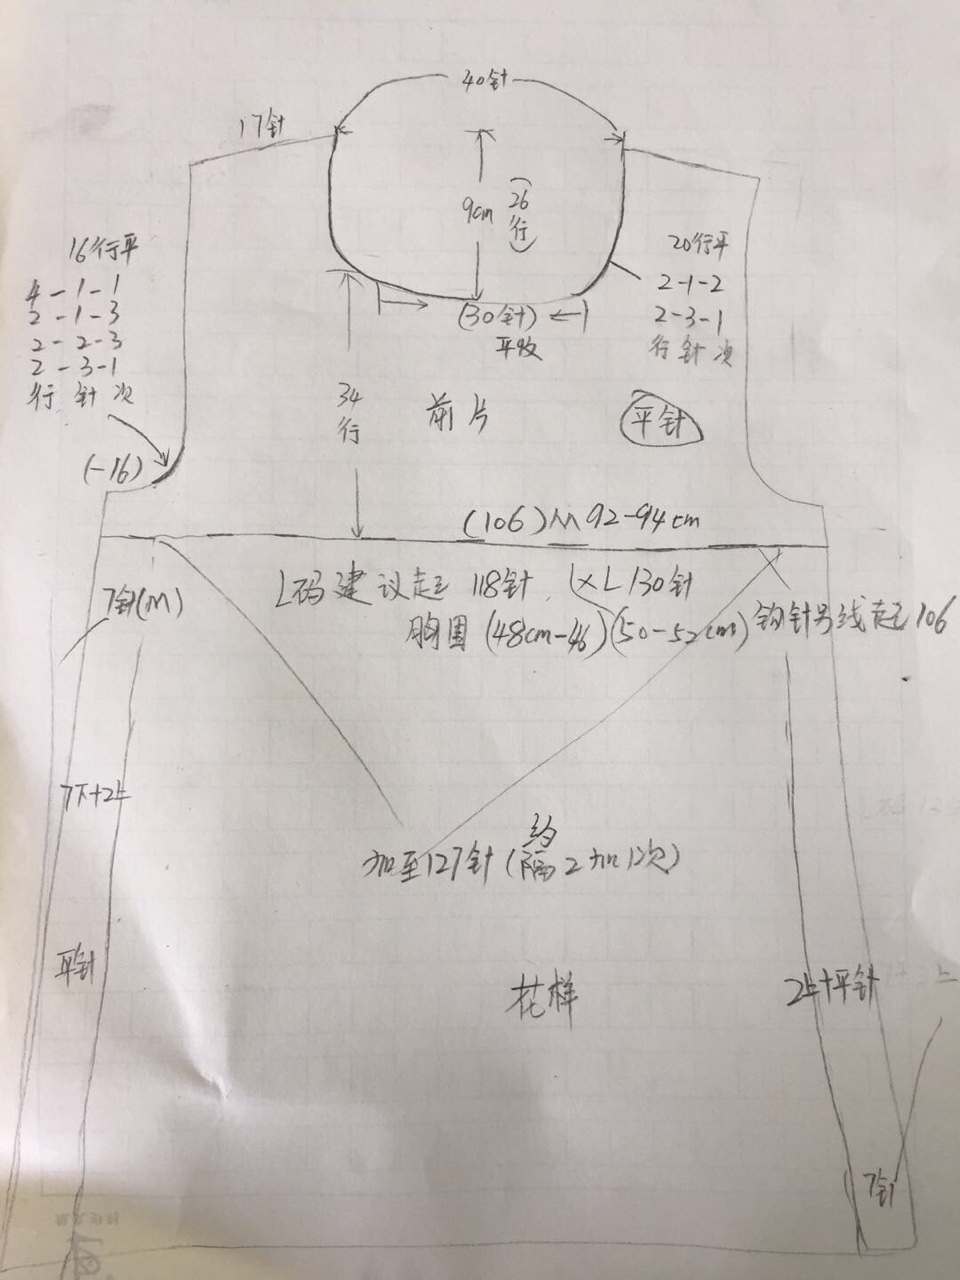 40针
17针
9cm
(26行)
16行平
4-1-1
2-1-3
2-2-3
2-3-1
行 针 次
(-16)
20行平
2-1-2
2-3-1
行 针 次
(30针)
平收
34行
前片
平针
(106)M 92-94cm
L码建议起 118针. (XL 130针
胸围 (48cm-46)(50-52cm)
钩针另线起106
7针(M)
7下+2上
加至127针(约隔2加1次)
平针
花样
2上+平针
7针